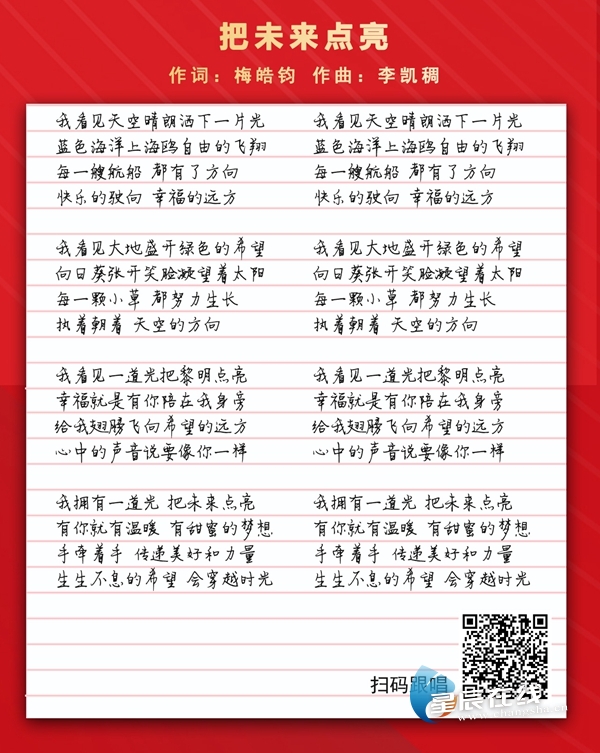 把未来点亮
作词：梅皓钧 作曲：李凯稠
我看见天空晴朗洒下一片光
蓝色海洋上海鸥自由的飞翔
每一艘航船 都有了方向
快乐的驶向 幸福的远方
我看见大地盛开绿色的希望
向日葵张开笑脸凝望着太阳
每一颗小草 都努力生长
执着朝着 天空的方向
我看见一道光把黎明点亮
幸福就是有你陪在我身旁
给我翅膀飞向希望的远方
心中的声音说要像你一样
我拥有一道光 把未来点亮
有你就有温暖 有甜蜜的梦想
手牵着手 传递美好和力量
生生不息的希望 会穿越时光
我看见天空晴朗洒下一片光
蓝色海洋上海鸥自由的飞翔
每一艘航船 都有了方向
快乐的驶向 幸福的远方
我看见大地盛开绿色的希望
向日葵张开笑脸凝望着太阳
每一颗小草 都努力生长
执着朝着 天空的方向
我看见一道光把黎明点亮
幸福就是有你陪在我身旁
给我翅膀飞向希望的远方
心中的声音说要像你一样
我拥有一道光 把未来点亮
有你就有温暖 有甜蜜的梦想
手牵着手 传递美好和力量
生生不息的希望 会穿越时光
扫码跟唱
星辰在线